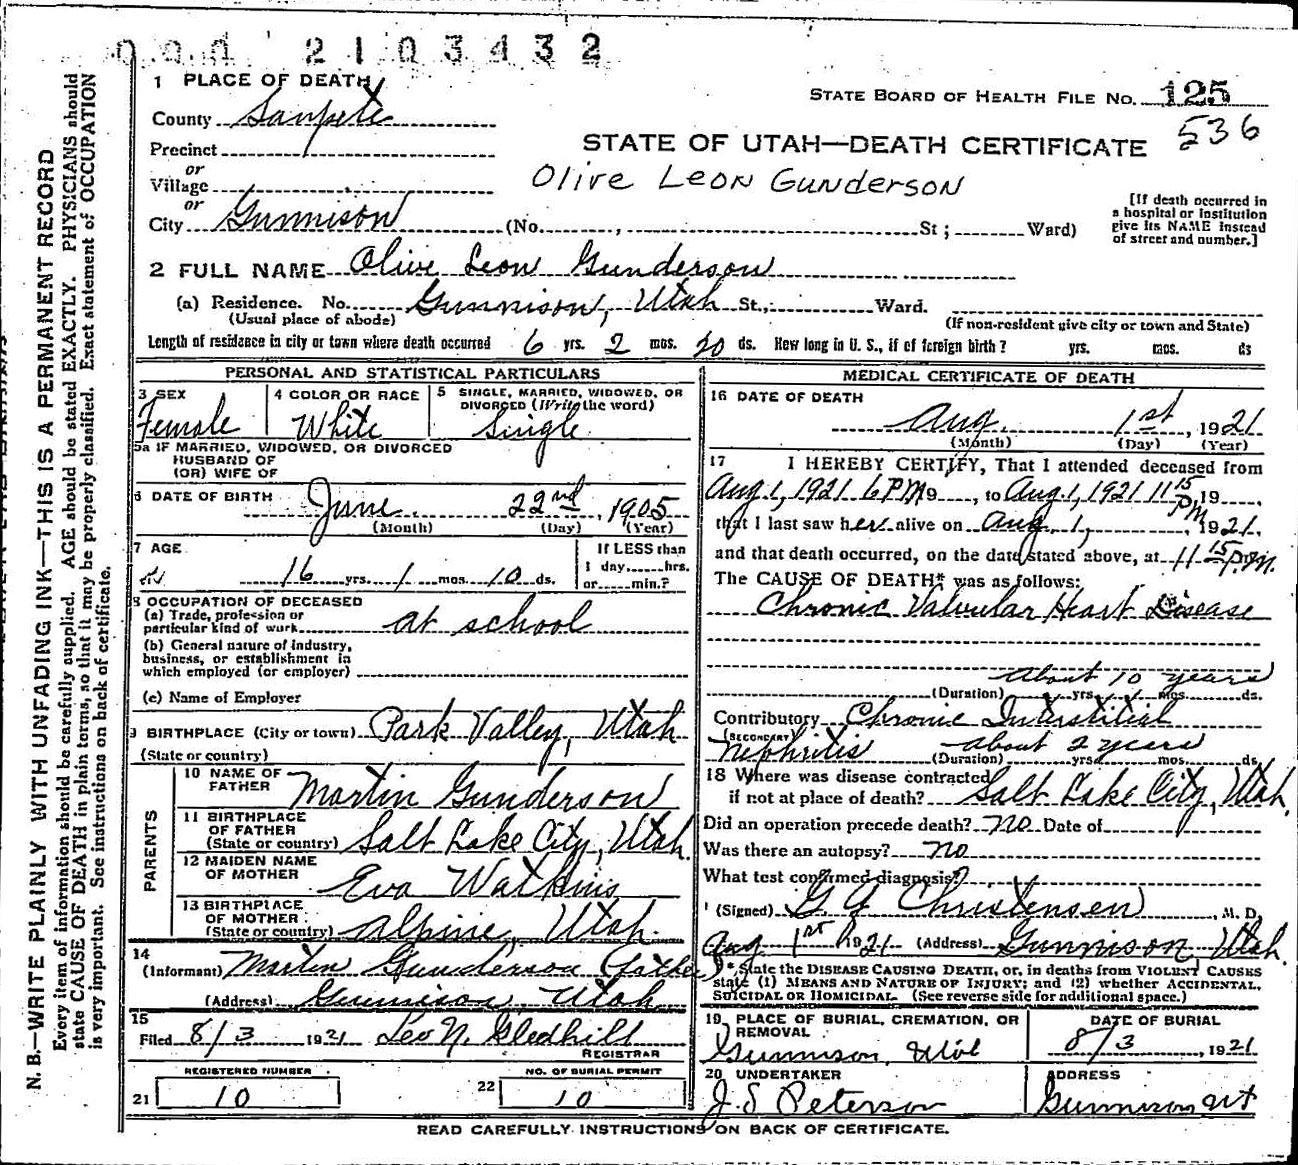 2103432
1 PLACE OF DEATH
STATE BOARD OF HEALTH FILE NO. 125
536
County Sanpete
STATE OF UTAH—DEATH CERTIFICATE
Precinct
or
Village
Olive Leon Gunderson
or
City Gunnison (No. , St ; Ward)
[If death occurred in a hospital or institution give its NAME instead of street and number.]
2 FULL NAME Olive Leon Gunderson
(a) Residence. No. Gunnison, Utah St., Ward.
(Usual place of abode) (If non-resident give city or town and State)
Length of residence in city or town where death occurred 6 yrs. 2 mos. 20 ds. How long in U. S., if of foreign birth? yrs. mos. ds
PERSONAL AND STATISTICAL PARTICULARS
3 SEX Female
4 COLOR OR RACE White
5 SINGLE, MARRIED, WIDOWED, OR DIVORCED (Write the word) Single
5a IF MARRIED, WIDOWED, OR DIVORCED
HUSBAND OF
(OR) WIFE OF
6 DATE OF BIRTH June 22nd, 1905
(Month) (Day) (Year)
7 AGE 16 yrs. 1 mos. 10 ds.
If LESS than 1 day, hrs. or min.?
8 OCCUPATION OF DECEASED
(a) Trade, profession or particular kind of work at school
(b) General nature of industry, business, or establishment in which employed (or employer)
(c) Name of Employer
9 BIRTHPLACE (City or town) Park Valley, Utah
(State or country)
PARENTS
10 NAME OF FATHER Martin Gunderson
11 BIRTHPLACE OF FATHER (State or country) Salt Lake City, Utah.
12 MAIDEN NAME OF MOTHER Eva Watkins
13 BIRTHPLACE OF MOTHER (State or country) Alpine, Utah.
14
(Informant) Martin Gunderson (father)
(Address) Gunnison, Utah
15
Filed 8/3 1921 Leo N. Gledhill
REGISTRAR
REGISTERED NUMBER
21 10
NO. OF BURIAL PERMIT
22 10
MEDICAL CERTIFICATE OF DEATH
16 DATE OF DEATH
Aug. 1st, 1921
(Month) (Day) (Year)
17 I HEREBY CERTIFY, That I attended deceased from
Aug. 1, 1921 6 PM 19 , to Aug. 1, 1921 11 15 PM 19 ,
that I last saw her alive on Aug. 1, 1921,
and that death occurred, on the date stated above, at 11 15 P.M.
The CAUSE OF DEATH* was as follows:
Chronic Valvular Heart Disease
about 10 years
(Duration) yrs. mos. ds.
Contributory Chronic Interstitial
(SECONDARY)
Nephritis about 2 years
(Duration) yrs. mos. ds
18 Where was disease contracted
if not at place of death? Salt Lake City, Utah.
Did an operation precede death? no Date of
Was there an autopsy? no
What test confirmed diagnosis?
(Signed) G G Christensen, M. D.
Aug 1st 1921 (Address) Gunnison, Utah.
* State the DISEASE CAUSING DEATH, or, in deaths from VIOLENT CAUSES state (1) MEANS AND NATURE OF INJURY; and (2) whether ACCIDENTAL, SUICIDAL OR HOMICIDAL. (See reverse side for additional space.)
19 PLACE OF BURIAL, CREMATION, OR REMOVAL
Gunnison
DATE OF BURIAL
8/3, 1921
20 UNDERTAKER
J. S Peterson
ADDRESS
Gunnison Ut
READ CAREFULLY INSTRUCTIONS ON BACK OF CERTIFICATE.
N. B.—WRITE PLAINLY WITH UNFADING INK—THIS IS A PERMANENT RECORD
Every item of information should be carefully supplied. AGE should be stated EXACTLY. PHYSICIANS should
state CAUSE OF DEATH in plain terms, so that it may be properly classified. Exact statement of OCCUPATION
is very important. See instructions on back of certificate.